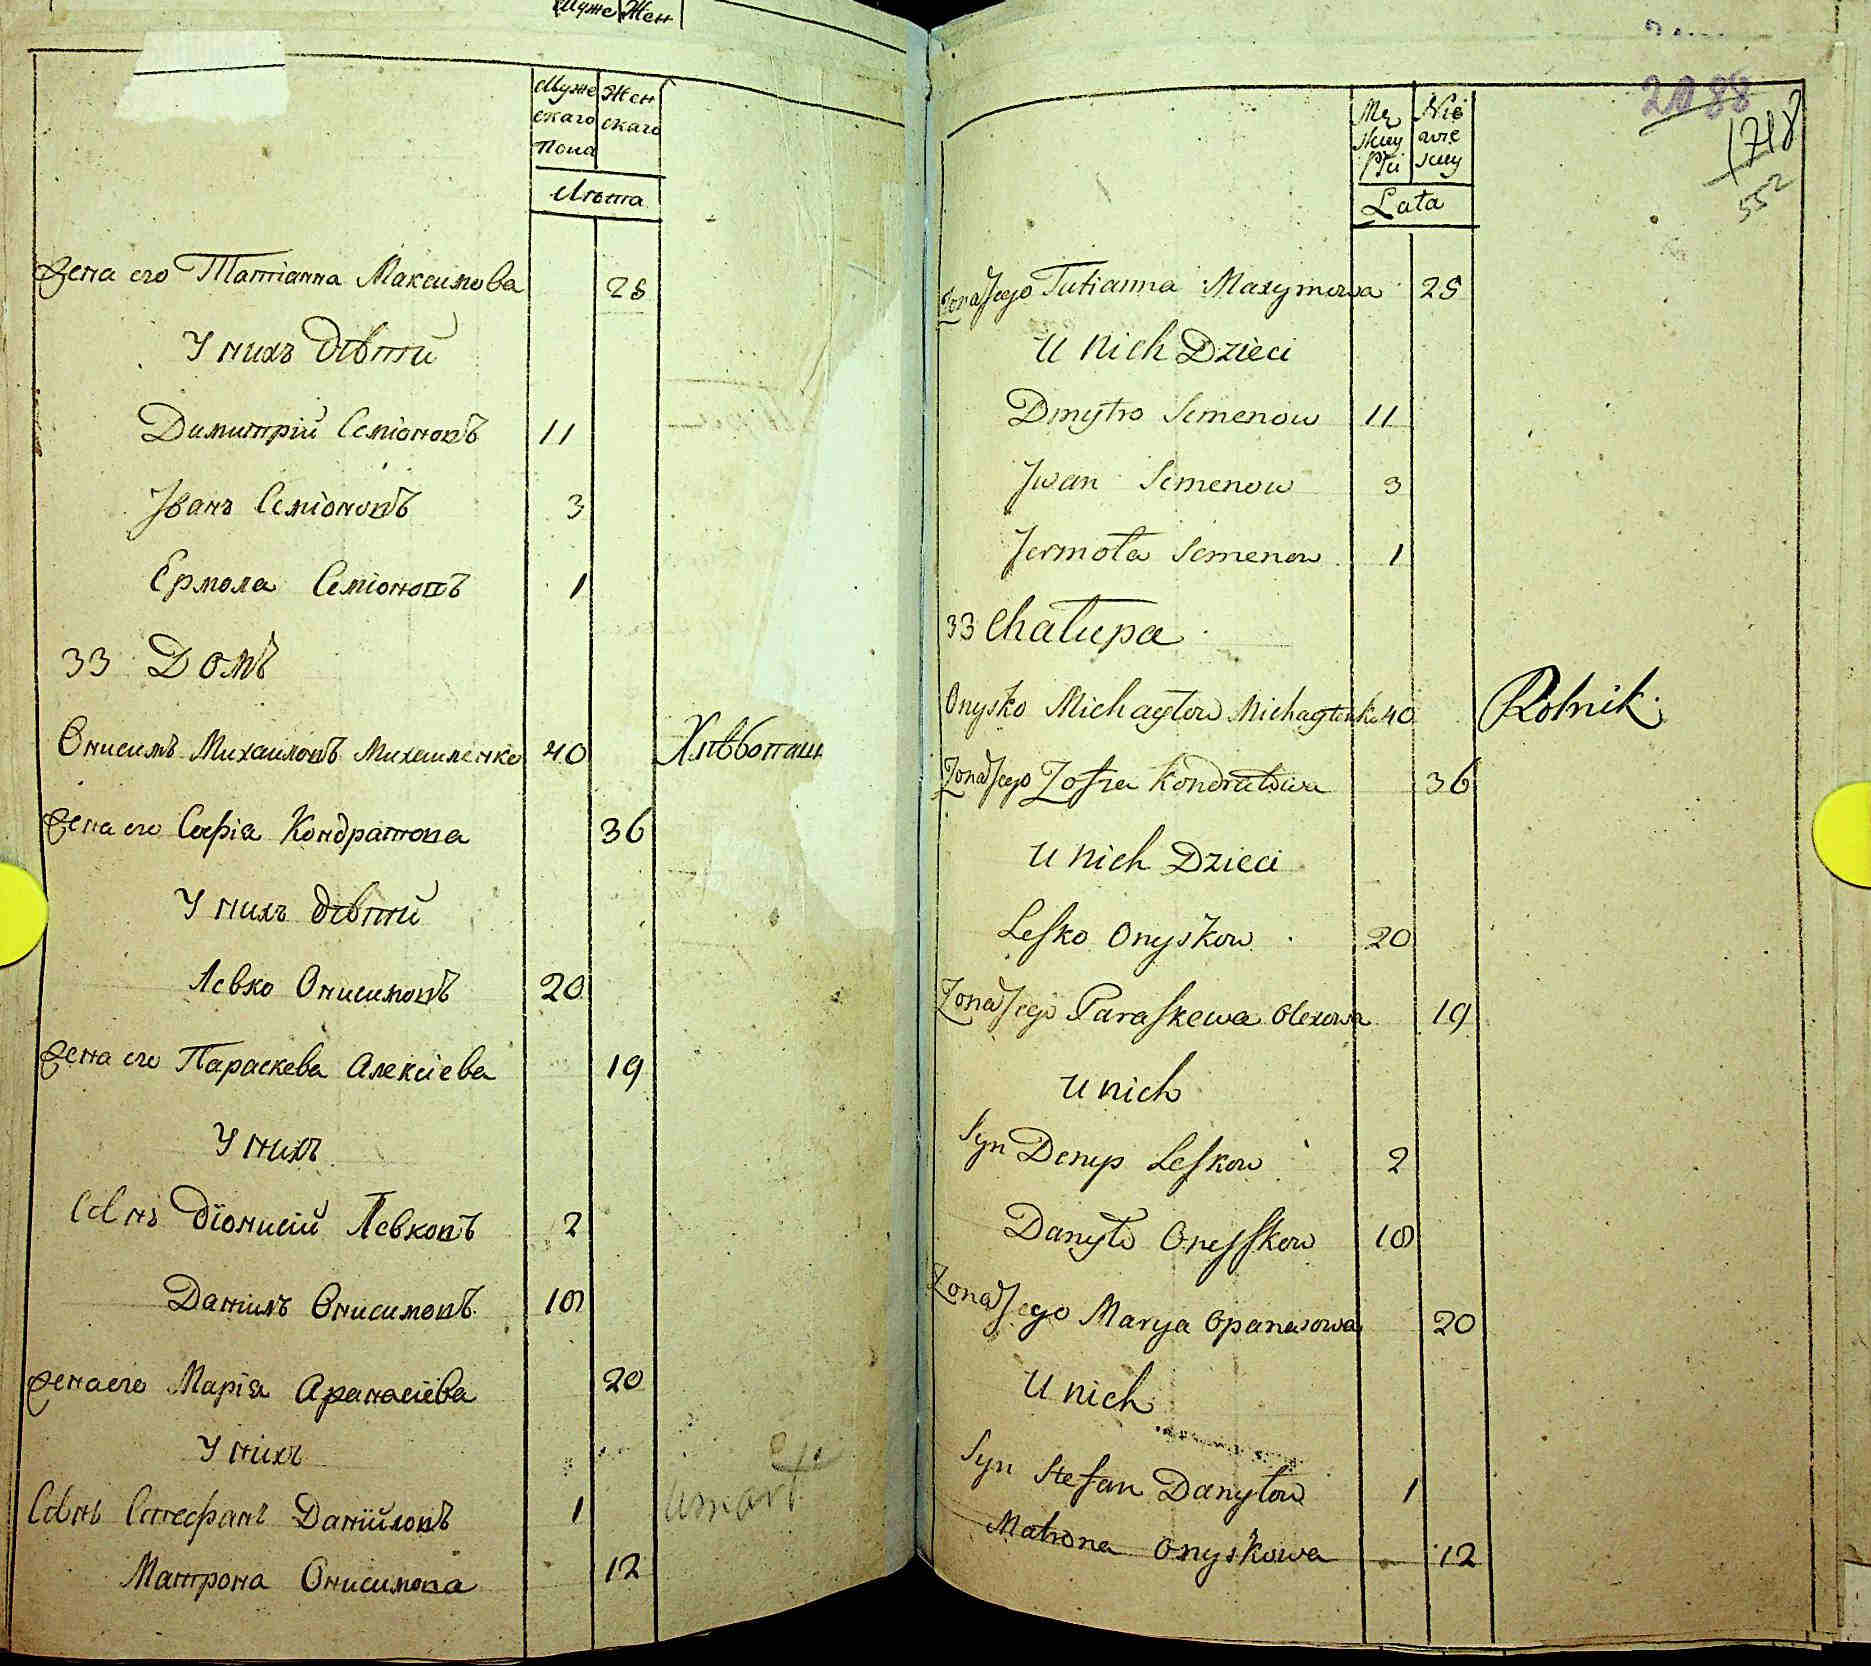 Муже Жен
Муже Жен
скаго скаго
Пола
Лѣта
Жена его Татіанна Максимова 28
У нихъ Дѣти
Димитрій Семіоновъ 11
Іванъ Семіоновъ 3
Ермола Семіоновъ 1
33 Домъ
Онисимъ Михаиловъ Михаиленко 40 Хлѣбопаш
Жена его Софія Кондратова 36
У нихъ Дѣти
Левко Онисимовъ 20
Жена его Параскева Алексіева 19
У нихъ
Сынъ Діонисій Левковъ 2
Даніилъ Онисимовъ 18
Жена его Марія Афанасіева 20
У нихъ
Сынъ Стефанъ Даніиловъ 1 umarł
Матрона Онисимова 12
2088
1718
552
Mę Nie
skiey wie
Płci skiey
Lata
Żona Jego Tatianna Maxymowa 28
U nich Dzieci
Dmytro Semenow 11
Jwan Semenow 3
Jermoła Semenow 1
33 Chałupa
Onysko Michayłow Michayłenko 40 Rolnik
Żona Jego Zofia Kondratowa 36
U nich Dzieci
Lesko Onyskow 20
Żona Jego Paraskewa Olexowa 19
U nich
Syn Denys Leskow 2
Danyło Onysskow 18
Żona Jego Marya Opanasowa 20
U nich
Syn Stefan Danyłow 1
Matrona Onyskowa 12